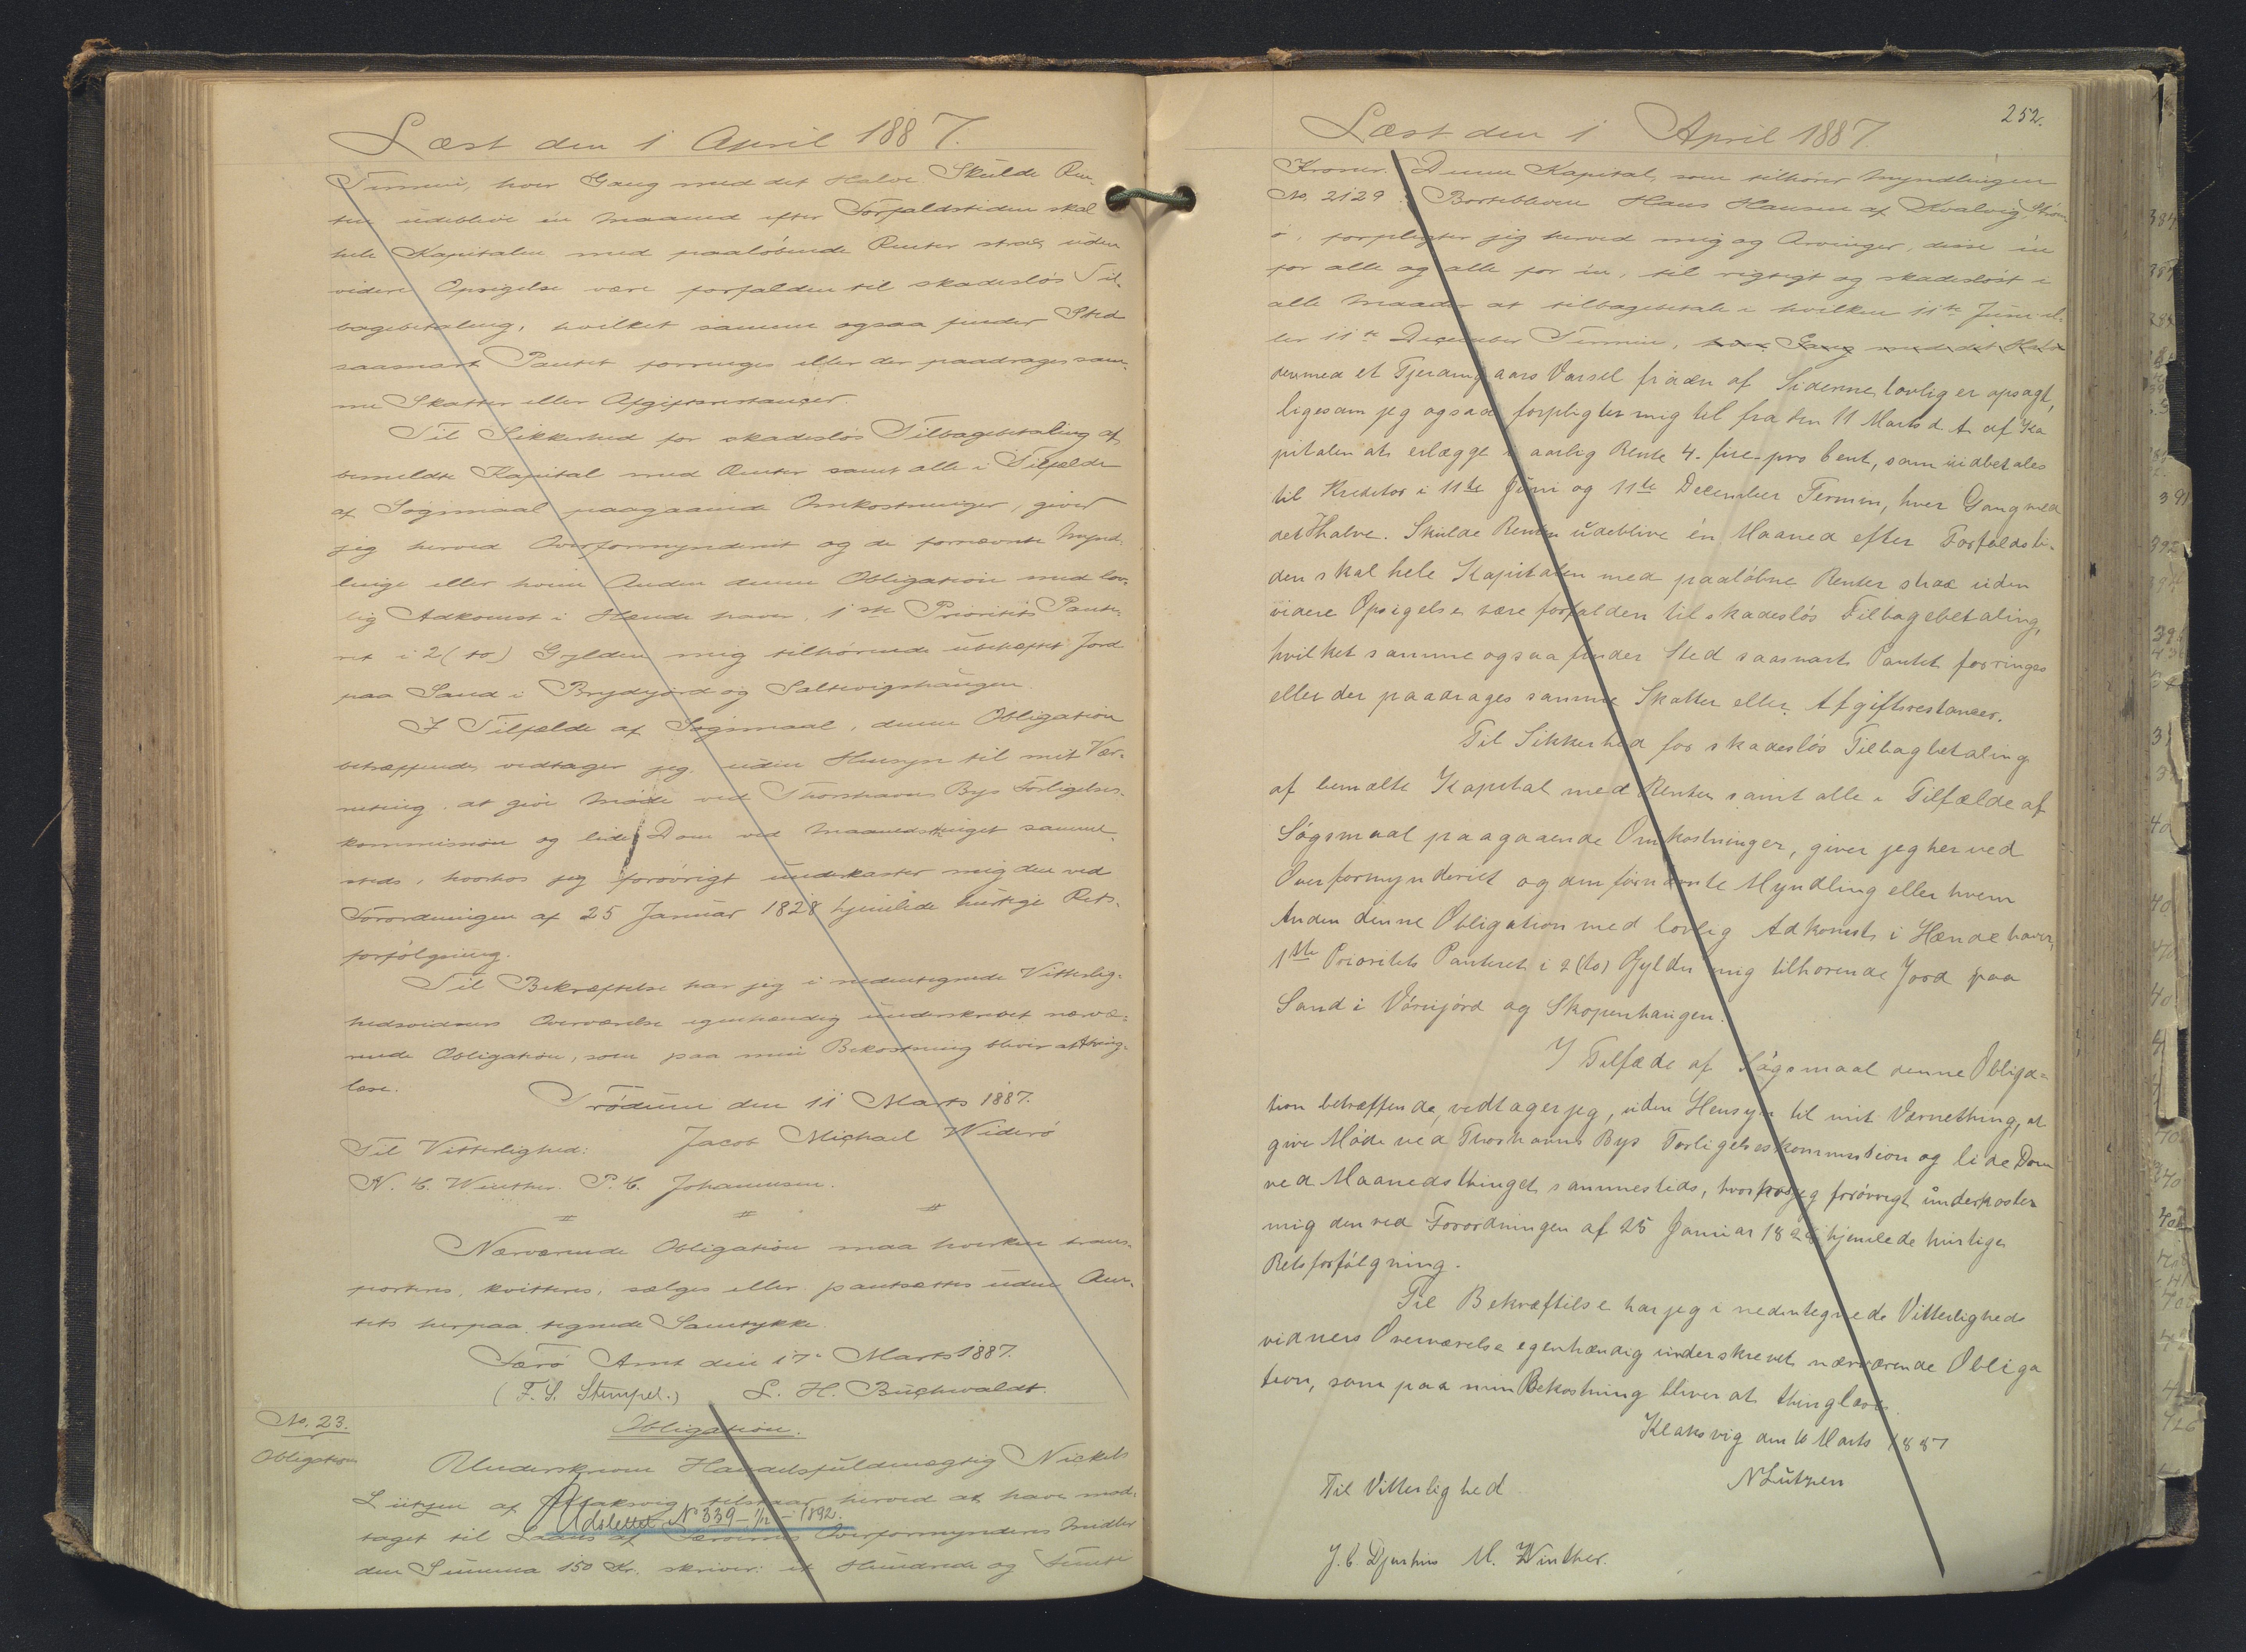 Læst den 1 April 1887.
Termin, hver Gang med det Halve. Skulde Ren-
ten udeblive én Maaned efter Forfaldstiden skal
hele Kapitalen med paaløbende Renter strax uden
videre Opsigelse være forfalden til skadesløs Til-
bagebetaling, hvilket samme ogsaa finder Sted
saasnart Pantet forringes eller der paadrages sam-
me Skatter eller Afgiftsrestancer.
Til Sikkerhed for skadesløs Tilbagebetaling af
bemeldte Kapital med Renter samt alle i Tilfælde
af Søgsmaal paagaaende Omkostninger, giver
jeg herved Overformynderiet og de fornævnte Mynd-
linge eller hvem Anden denne Obligation med lov-
lig Adkomst i Hænde haver, 1ste Prioritets Pante-
ret i 2 (to) Gylden mig tilhørende ubehæftet Jord
paa Sand i Brydjord og Saltvigshaugen.
I Tilfælde af Søgsmaal, denne Obligation
betræffende, vedtager jeg, uden Hensyn til mit Vær-
neting, at give Møde ved Thorshavns Byes Forligelses-
kommission og lide Dom ved Maanedsthinget samme-
steds, hvorhos jeg forøvrigt underkaster mig den ved
Forordningen af 25 Januar 1828 hjemlede hurtige Rets-
forfølgning.
Til Bekræftelse har jeg i nedentegnede Vitterlig-
hedsvidners Overværelse egenhændig underskrevet nærvæ-
rende Obligation, som paa min Bekostning bliver at thing-
læse.
Trødum den 11 Marts 1887.
Til Vitterlighed: Jacob Michael Widerö
N. C. Winther. P. C. Johannesen.
Nærværende Obligation maa hverken trans-
porteres, kvitteres, sælges eller pantsættes uden Am-
tets herpaa tegnede Samtykke.
Færø Amt den 17 Marts 1887.
(F. S. Stempel.) L. H. Buchwaldt.
No. 23. Obligation.
Obligation Underskrevne Handelsfuldmægtig Nickels
Lützen af Klaksvig tilstaar herved at have mod-
Udslettet No 339 - 1/12 - 1892.
taget til Laans af Færøernes Overformynderis Midler
den Summa 150 Kr. skriver: et Hundrede og femti
252.
Læst den 1 April 1887.
Kroner. Denne Kapital, som tilhører Myndlingen
No. 2129: Bortebleven Hans Hansen af Kvalvig, Strøm-
ø, forpligter jeg herved mig og Arvinger, disse én
for alle og alle for én, til rigtigt og skadesløst i
alle Maader at tilbagebetale i hvilken 11te Juni el-
ler 11te December Termin, hver Gang med det Halve
den med et Fjerdingaars Varsel fra een af Siderne lovlig er opsagt,
ligesom jeg ogsaa forpligter mig til fra den 11 Marts d. A. af Ka
pitalen at erlægge i aarlig Rente 4. fire pro Cent, som indbetales
til Kreditor i 11te Juni og 11te December Termin, hver Gang med
det Halve. Skulde Renten udeblive én Maaned efter Forfaldsti-
den skal hele Kapitalen med paaløbne Renter strax uden
videre Opsigelse være forfalden til skadesløs Tilbagebetaling,
hvilket samme ogsaa finder Sted saasnart Pantet forringes
eller der paadrages samme Skatter eller Afgiftsrestancer.
Til Sikkerhed for skadesløs Tilbagbetaling
af bemælte Kapital med Renter samt alle i Tilfælde af
Søgsmaal paagaaende Omkostninger, giver jeg herved
Overformynderiet og den fornævnte Myndling eller hvem
Anden denne Obligation med lovlig Adkomst i Hænde haver,
1ste Prioritets Panteret i 2 (to) Gylden mig tilhørende Jord paa
Sand i Vørujørd og Skopunhaugen.
I Tilfæde af Søgsmaal denne Obliga-
tion betræffende, vedtager jeg, uden Hensyn til mit Værnething, at
give Møde ved Thorshavns Bys Forligelseskommission og lide Dom
ved Maanedsthinget sammesteds, hvorhos jeg forøvrigt underkaster
mig den ved Forordningen af 25 Januar 1828 hjemlede hurtige
Retsforfølgning.
Til Bekræftelse har jeg i nedentegnede Vitterligheds
vidners Overværelse egenhændig underskrevet nærværende Obliga
tion, som paa min Bekostning bliver at thinglæse.
Klaksvig den 10 Marts 1887
Til Vitterlighed NLützen
J. C. Djurhus M. Winther.